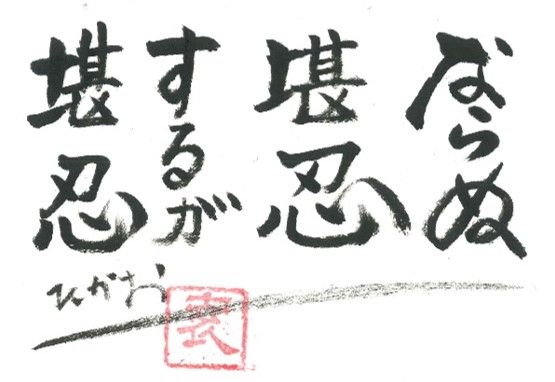 ならぬ
堪忍
するが
堪忍
ひがお